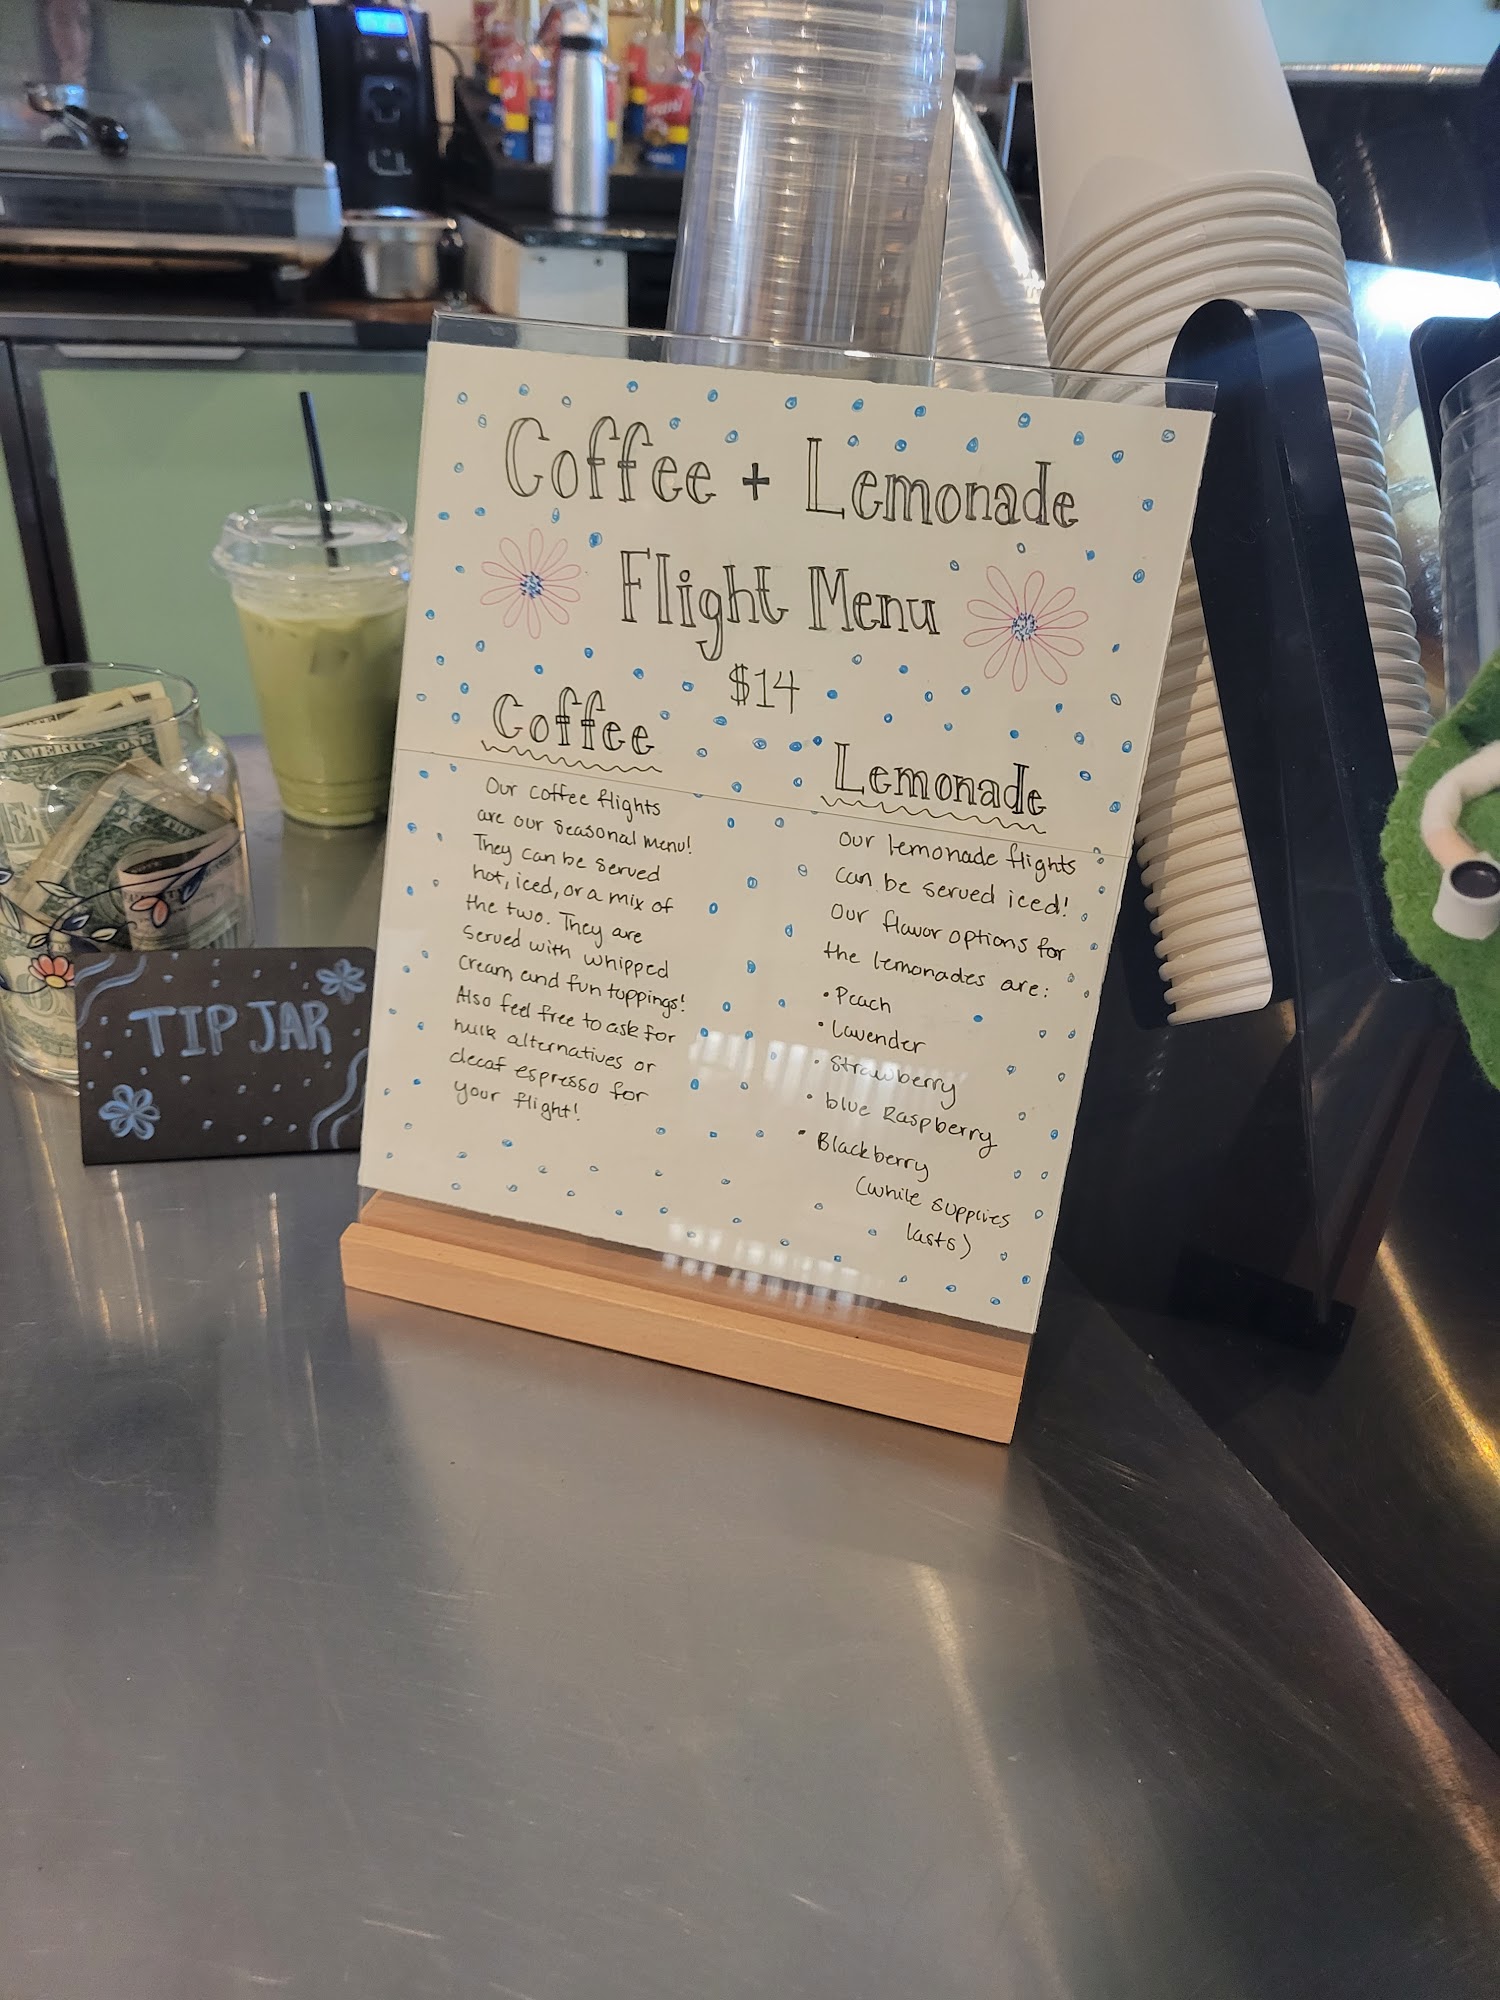 Coffee + Lemonade
Flight Menu
$14
Coffee
Our coffee flights
are our seasonal menu!
They can be served
hot, iced, or a mix of
the two. They are
served with whipped
cream and fun toppings!
Also feel free to ask for
milk alternatives or
decaf espresso for
your flight!
Lemonade
Our lemonade flights
can be served iced!
Our flavor options for
the lemonades are:
• Peach
• Lavender
• Strawberry
• blue Raspberry
• Blackberry
(while supplies
lasts)
TIP JAR